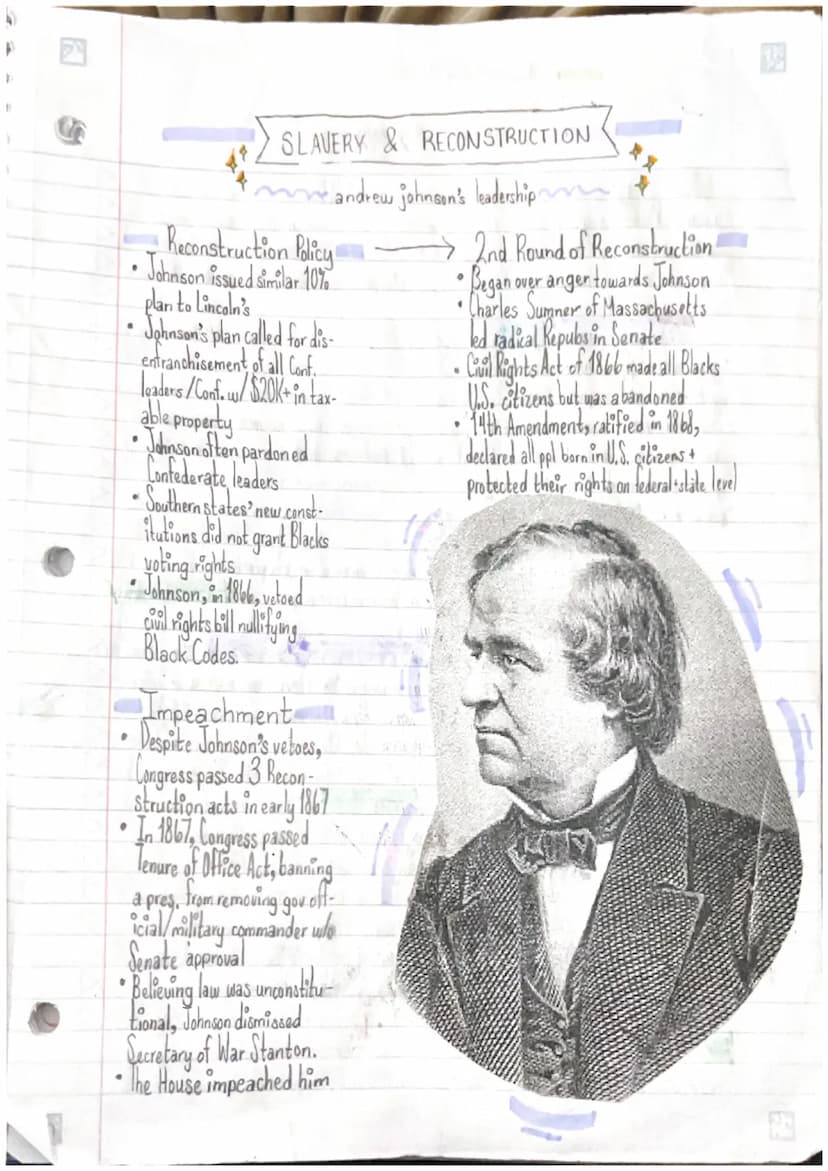 SLAVERY & RECONSTRUCTION
andrew johnson's leadership
Reconstruction Policy
• Johnson issued similar 10%
plan to Lincoln's
• Johnson's plan called for dis-
enfranchisement of all Conf.
leaders/Conf. w/ $20K+ in tax-
able property
• Johnson often pardoned
Confederate leaders
• Southern states' new const-
itutions did not grant Blacks
voting rights
• Johnson, in 1866, vetoed
civil rights bill nullifying
Black Codes.
2nd Round of Reconstruction
• Began over anger towards Johnson
• Charles Sumner of Massachusetts
led radical Repubs in Senate
• Civil Rights Act of 1866 made all Blacks
U.S. citizens but was abandoned
• 14th Amendment, ratified in 1868,
declared all ppl born in U.S. citizens +
protected their rights on federal + state level
Impeachment
• Despite Johnson's vetoes,
Congress passed 3 Recon-
struction acts in early 1867
• In 1867, Congress passed
Tenure of Office Act; banning
a pres. from removing gov off-
icial/military commander w/o
Senate approval
• Believing law was unconstitu-
tional, Johnson dismissed
Secretary of War Stanton.
• The House impeached him